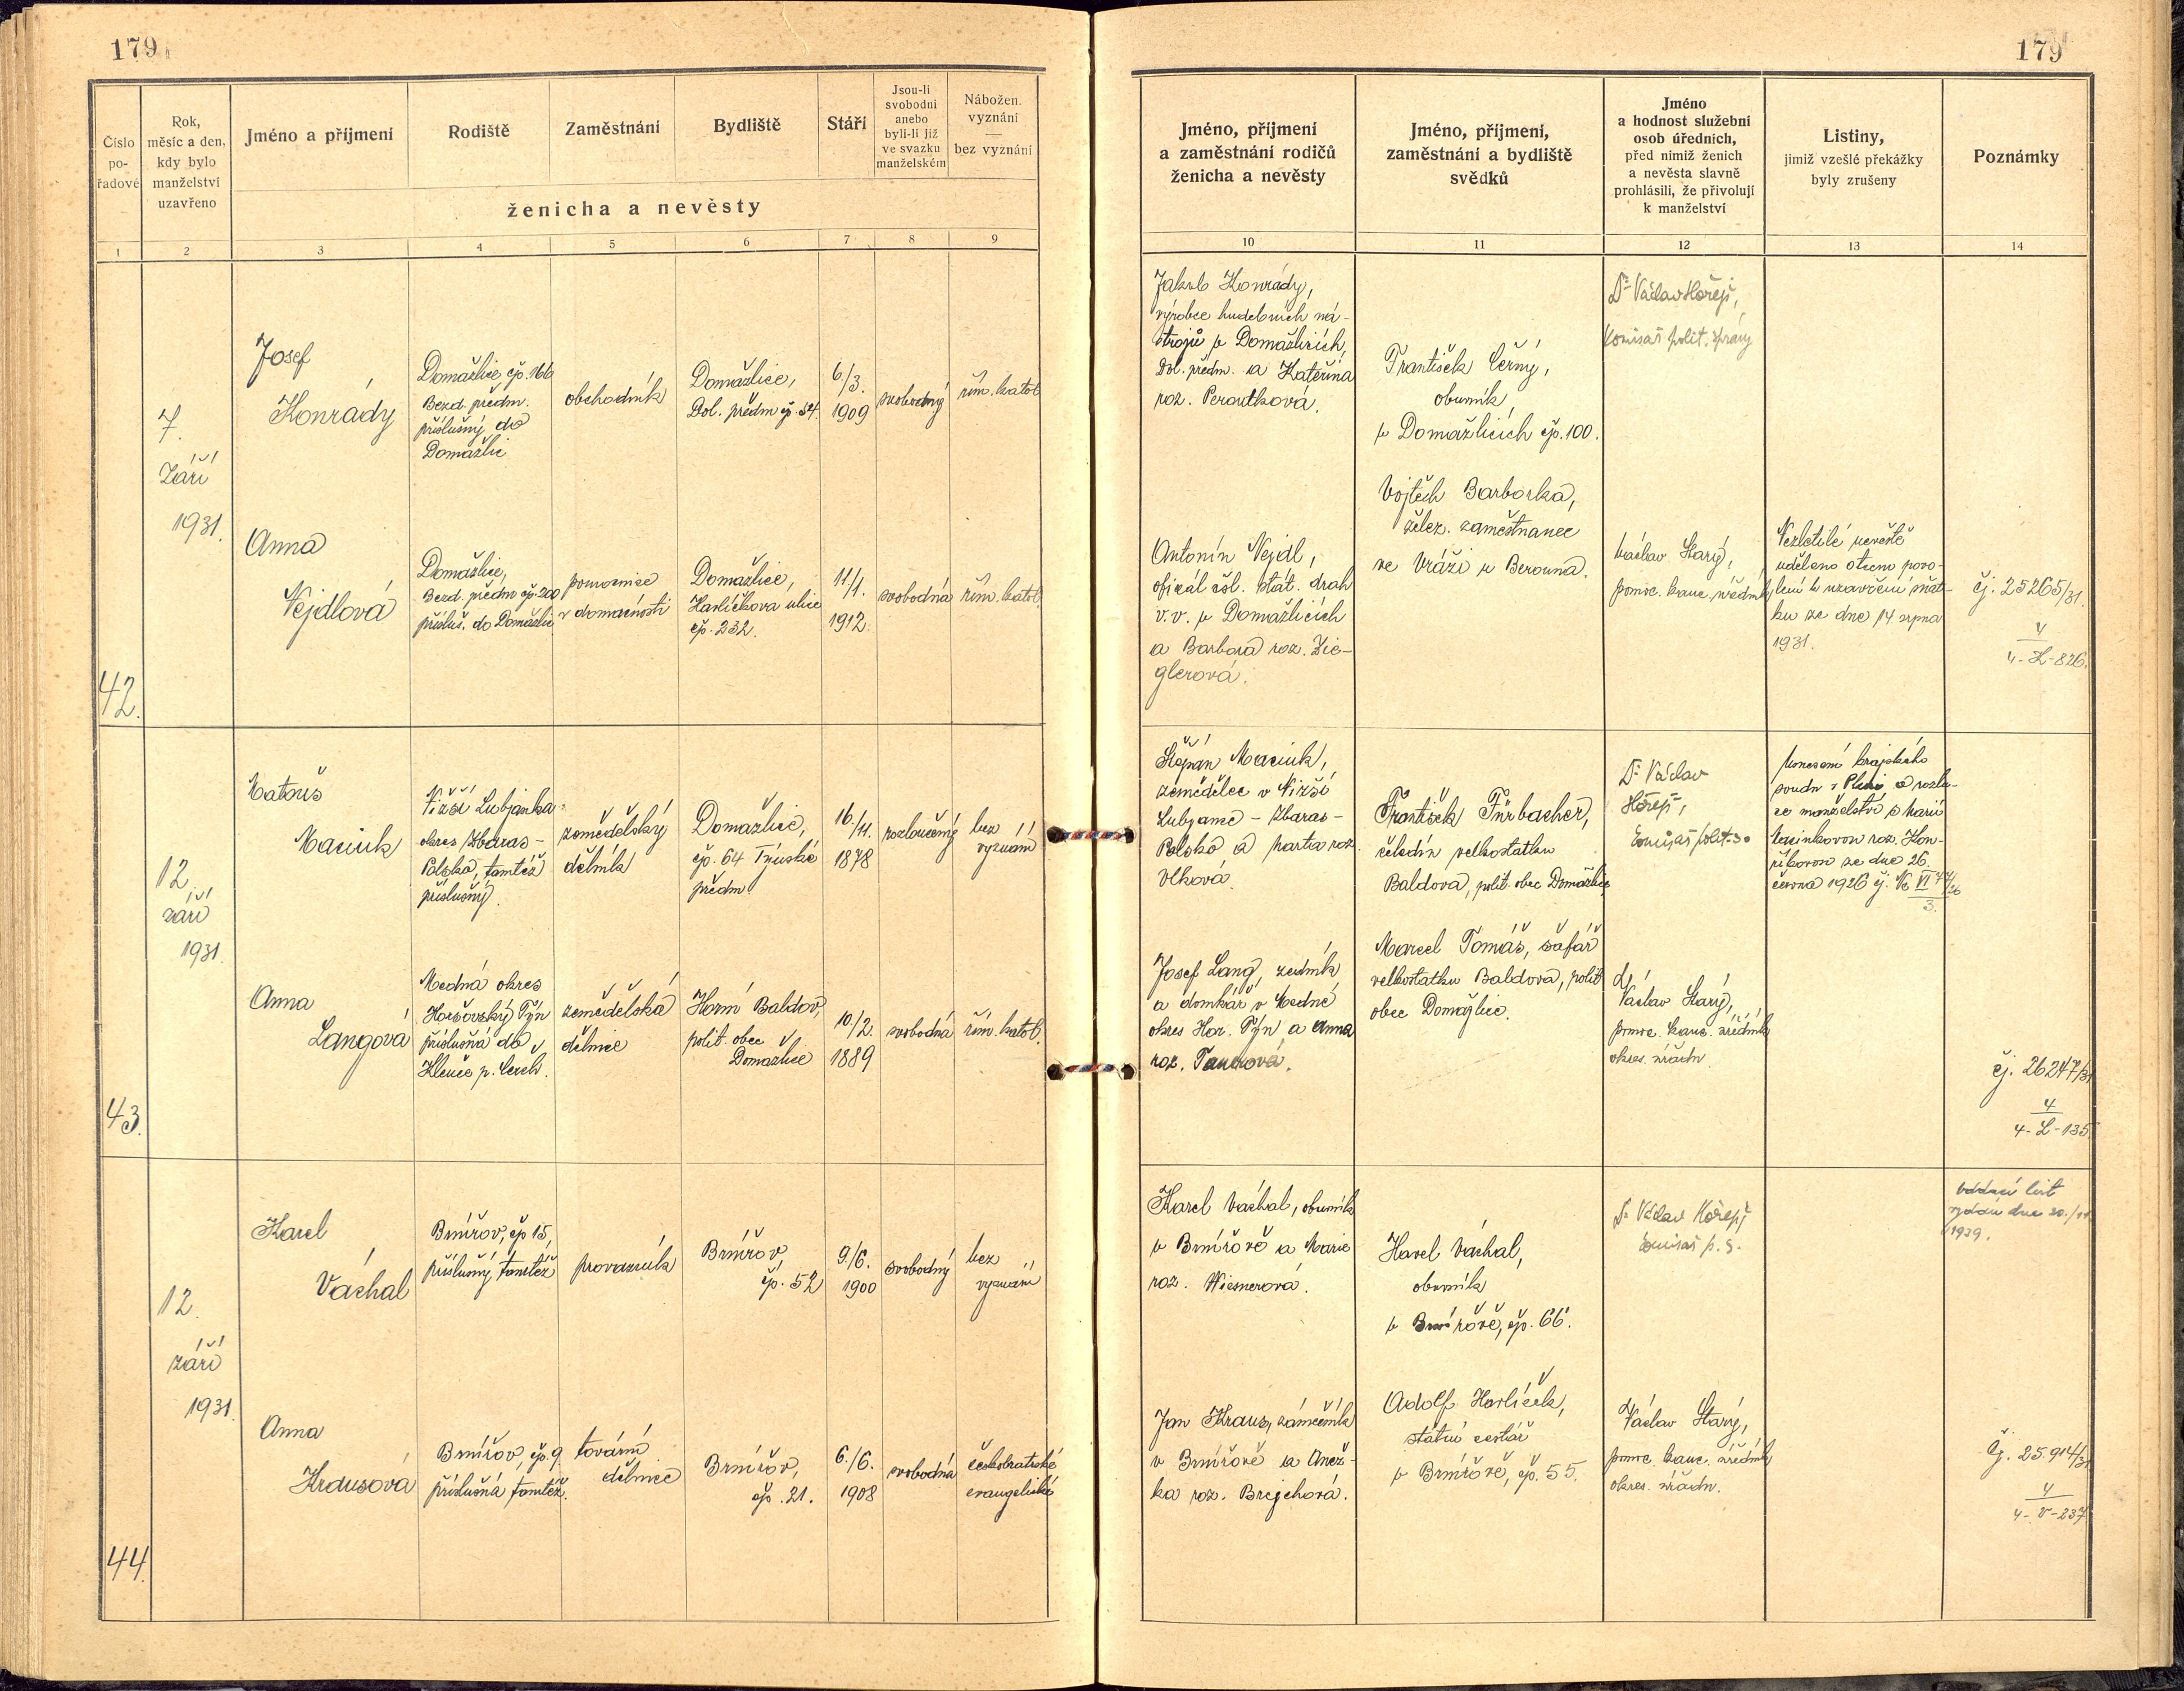 179
179
Číslo
po-
řadové
Rok,
měsíc a den,
kdy bylo
manželství
uzavřeno
Jméno a příjmení
Rodiště
Zaměstnání
Bydliště
Stáří
Jsou-li
svobodni
anebo
byli-li již
ve svazku
manželském
Nábožen.
vyznání
—
bez vyznání
ženicha a nevěsty
1 2 3 4 5 6 7 8 9
Jméno, příjmení
a zaměstnání rodičů
ženicha a nevěsty
Jméno, příjmení,
zaměstnání a bydliště
svědků
Jméno
a hodnost služební
osob úředních,
před nimiž ženich
a nevěsta slavně
prohlásili, že přivolují
k manželství
Listiny,
jimiž vzešlé překážky
byly zrušeny
Poznámky
10 11 12 13 14
42.
7.
září
1931.
Josef
Konrády
Domažlice čp. 166
Bezd. předm.
příslušný do
Domažlic
obchodník
Domažlice,
Dol. předm čp. 54.
6/3.
1909
svobodný
řím. katol.
Jakub Konrády,
výrobce hudebních ná-
strojů v Domažlicích,
Dol. předm. a Kateřina
roz. Peroutková.
František Černý,
obuvník,
v Domažlicích čp. 100.
Vojtěch Barborka,
želez. zaměstnanec
ve Vráži u Berouna.
Dr Václav Hořejš,
komisař polit. správy
Anna
Nejdlová
Domažlice,
Bezd. předm čp. 200
přísluš. do Domažlic
pomocnice
v domácnosti
Domažlice,
Havlíčkova ulice
čp. 232.
11/1.
1912.
svobodná
řím. katol.
Antonín Nejdl,
oficiál čsl. stát. drah
v.v. v Domažlicích
a Barbora roz. Zie-
glerová.
Václav Starý,
pomoc. kanc. úředník
Nezletilé nevěstě
uděleno otcem povo-
lení k uzavření sňat-
ku ze dne 14. srpna
1931.
čj. 25265/31.
4
4-K-826.
43.
12.
září
1931.
Matouš
Maciuk
Nižší Lubjanka
okres Zbaras-
Polska, tamtéž
příslušný.
zemědělský
dělník
Domažlice,
čp. 64 Týnské
předm.
16/11.
1878
rozloučený
bez
vyznání
Štěpán Maciuk,
zemědělec v Nižší
Lubjance - Zbaras-
Polsko a Marta roz.
Vlková.
František Fürbacher,
čeledín velkostatku
Baldova, polit. obec Domažlice
Marcel Tomáš, šafář
velkostatku Baldova, polit
obec Domažlice.
Dr Václav
Hořejš,
komisař polit.
Usnesení krajského
soudu v Plzni o rozlu-
ce manželství s Marií
roz. Kon-
ze dne 26.
června 1926 čj. Nc VI
3.
Anna
Langová
Medná okres
Horšovský Týn
příslušná do
zemědělská
dělnice
Horní Baldov,
polit. obec
Domažlice
10/2.
1889
svobodná
řím. katol.
Josef Lang, zedník
a domkář v Medné
okres Hor. Týn a Anna
roz.
Václav Starý,
pomoc. kanc. úředník
okres. úřadu
čj. 26247/31
4
4-L-135
44.
12.
září
1931.
Karel
Váchal
Brnířov, čp 15,
příslušný tamtéž
provazník
Brnířov
čp. 52
9/6.
1900
svobodný
bez
vyznání
Karel Váchal, obuvník
v Brnířově a Marie
roz. Wiesnerová.
Havel Váchal,
obuvník
v Brnířově, čp. 66.
Adolf Havlíček,
státní cestář
v Brnířově, čp. 55.
Dr Václav Hořejš
komisař p. s.
Oddací list
vydán dne 20./11
1939.
Anna
Krausová
Brnířov, čp. 9
příslušná tamtéž.
tovární
dělnice
Brnířov,
čp. 21.
6./6.
1908
svobodná
českobratrské
evangelické
Jan Kraus, zámečník
v Brnířově a Anež-
ka roz. Brejchová.
Václav Starý,
pomoc. kanc. úředník
okres. úřadu.
čj. 25.914/31
4
4-V-237